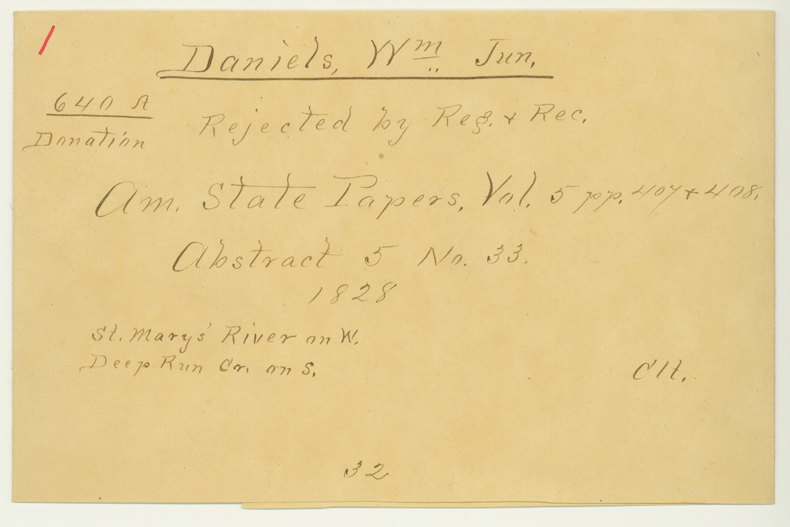 Daniels, Wm. Jun.
640 A
Donation
Rejected by Reg. & Rec.
Am. State Papers, Vol. 5 pp. 407 & 408.
Abstract 5 No. 33.
1828
St. Mary's River on W.
Deep Run Cr. on S.
32